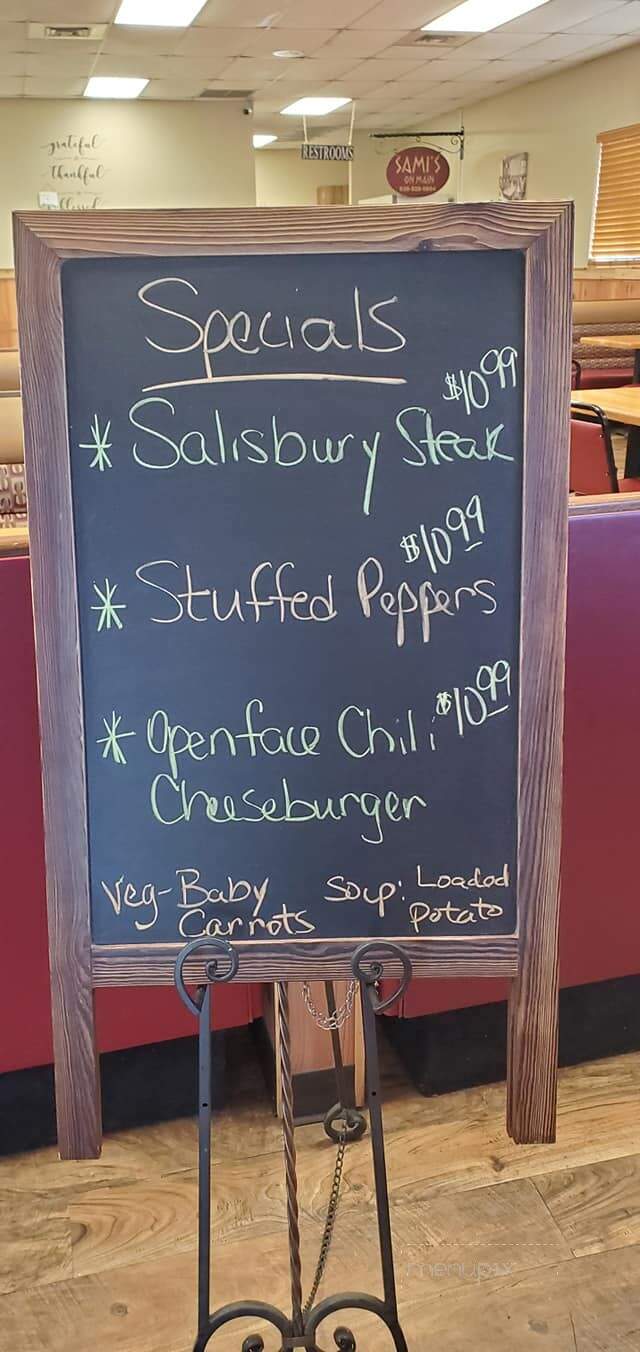 grateful
thankful
blessed
RESTROOMS
SAMI'S
ON MAIN
Specials
$10.99
* Salisbury Steak
$10.99
* Stuffed Peppers
$10.99
* Openface Chili
Cheeseburger
Veg-Baby
Carrots
Soup: Loaded
Potato
menupix